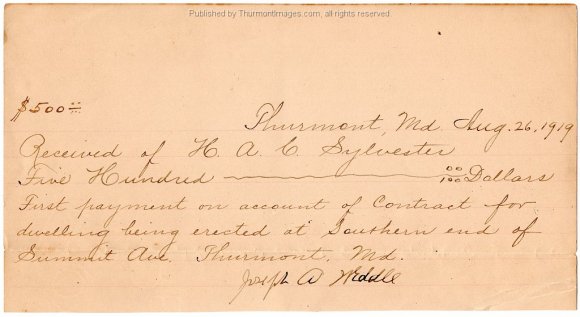 Published by ThurmontImages.com, all rights reserved.
$500 00
Thurmont, Md. Aug. 26, 1919
Received of H. A. C. Sylvester
Five Hundred 00/100 Dollars
First payment on account of Contract for
dwelling being erected at Southern end of
Summit Ave. Thurmont. Md.
Joseph A Weddle